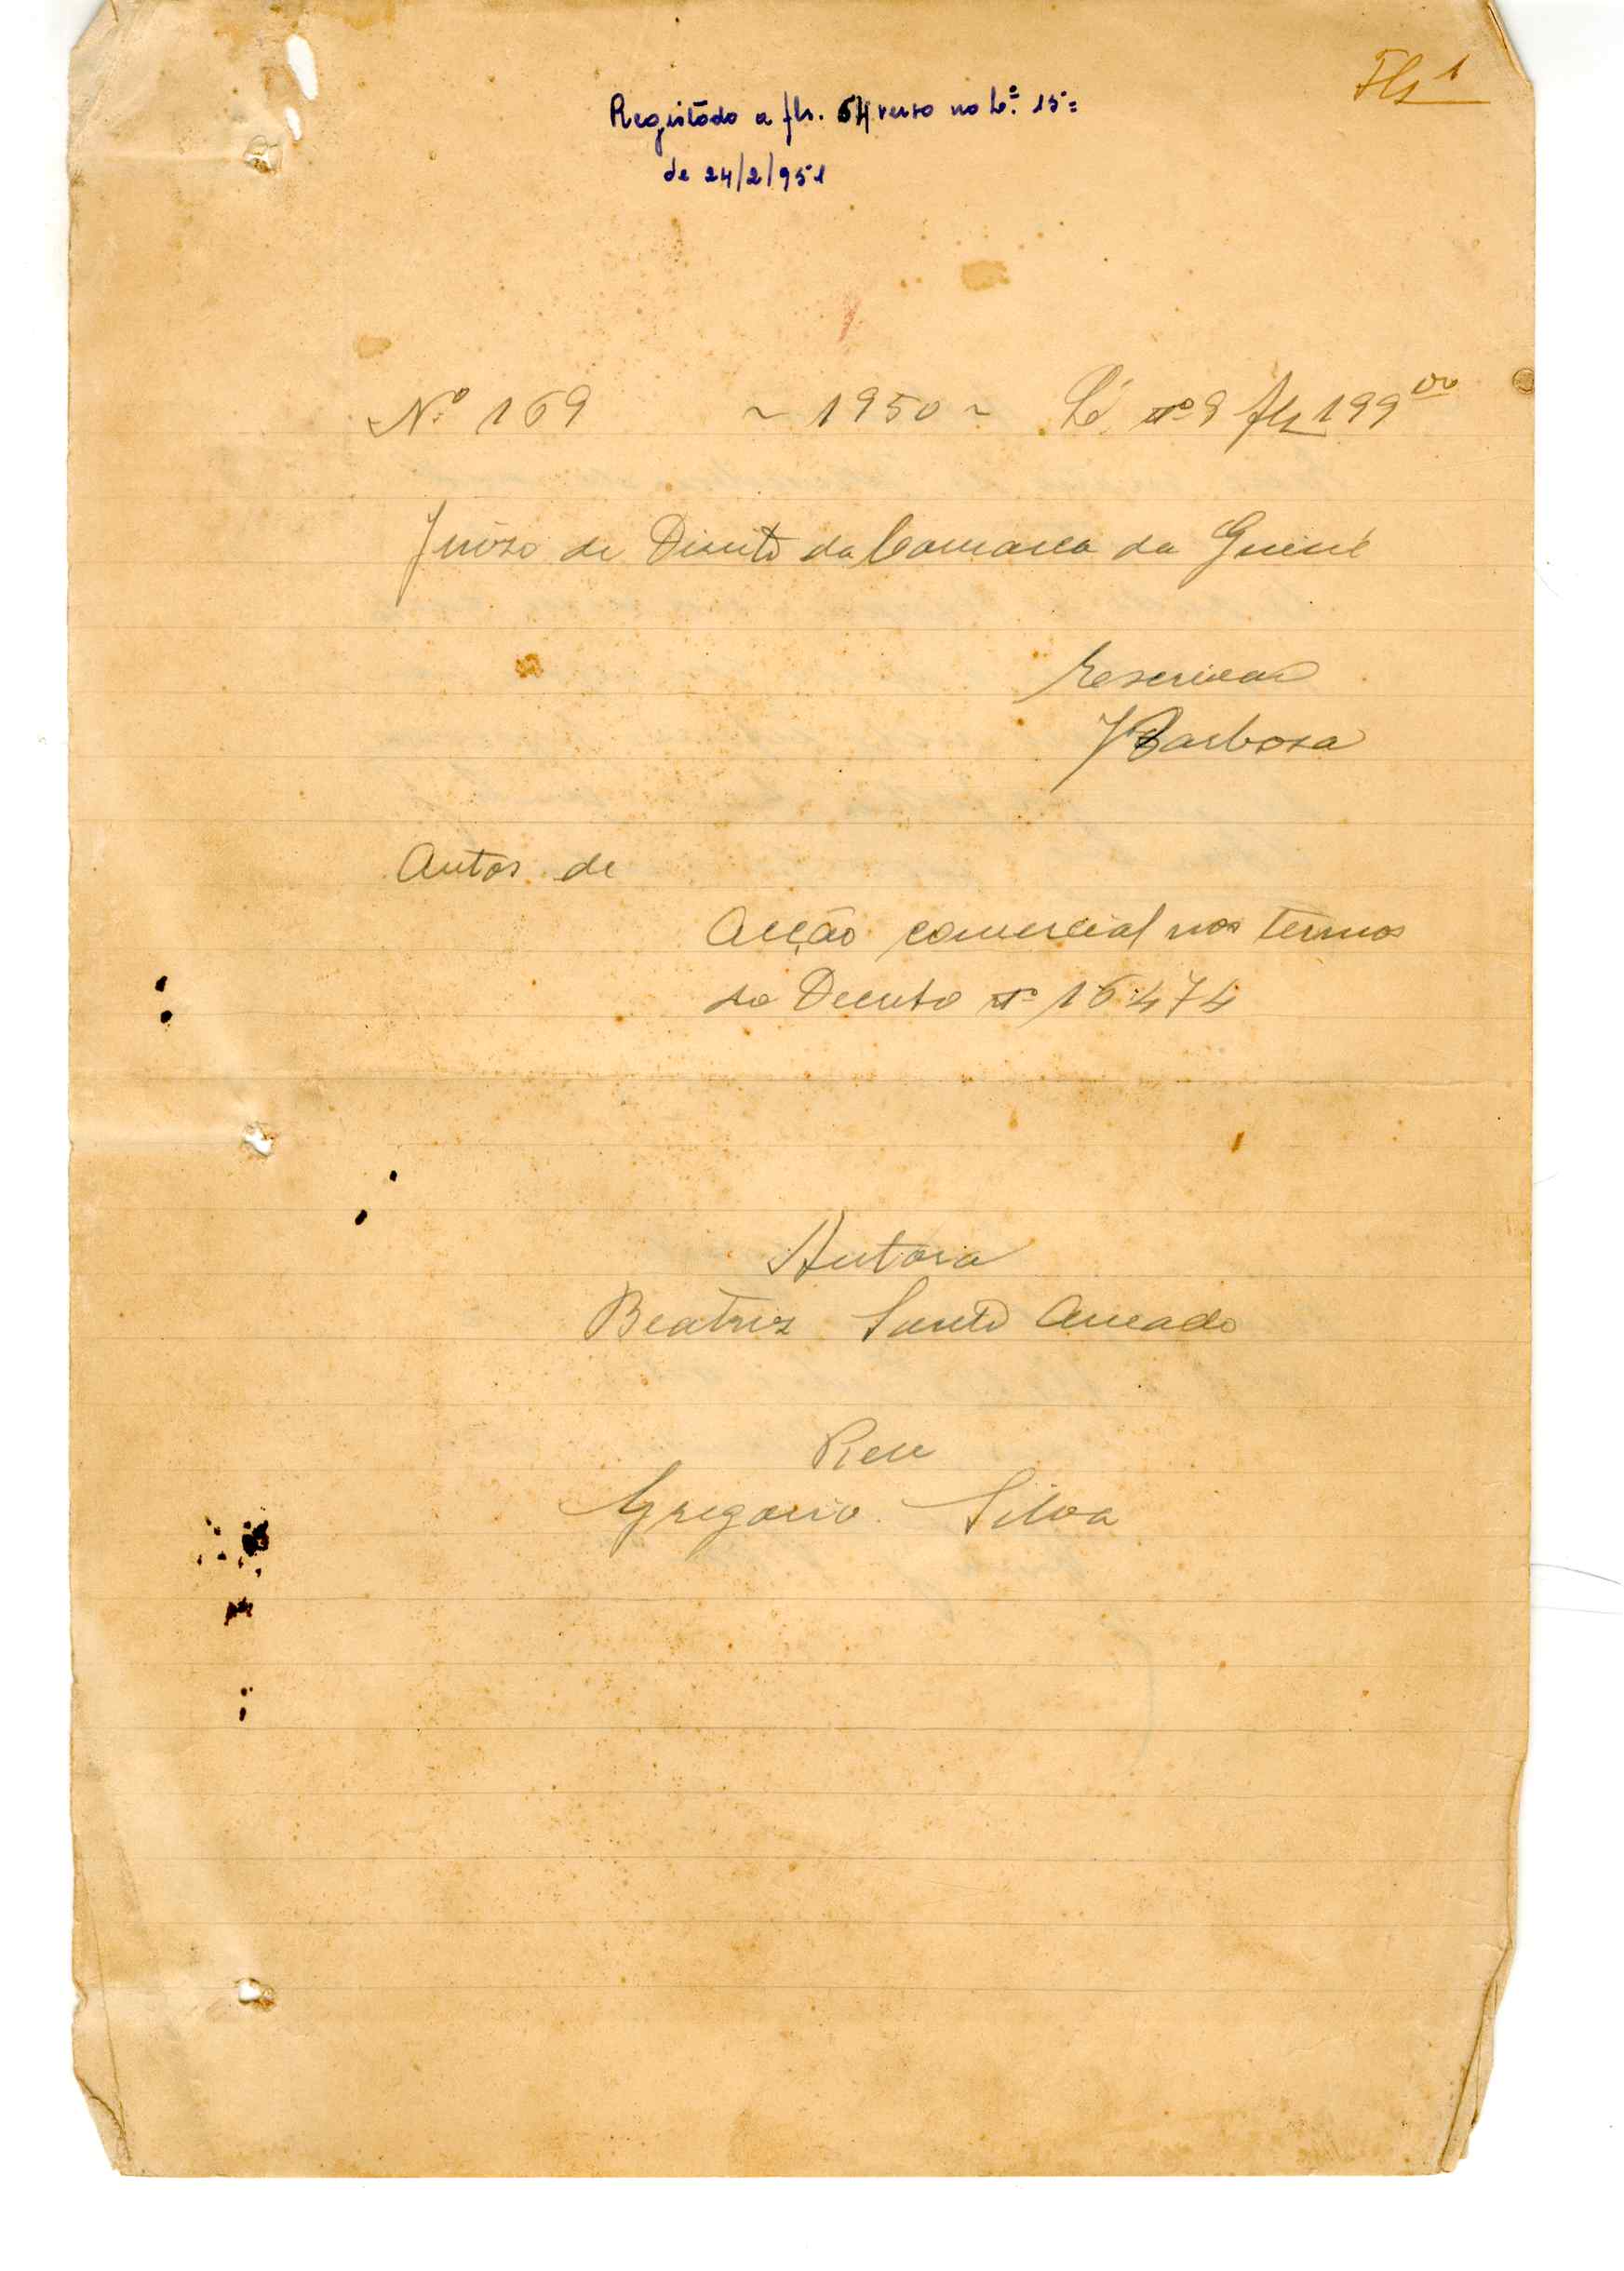 Fls 1
Registádo a fls. 64 verso no Lº. 15=
de 24/2/951
Nº 169 ~ 1950 ~ Lº nº 9 fls 199 vo
Juizo de Direito da Comarca da Guiné
Escrivão
JBarbosa
Autos de
Acção comercial nos termos
do Decreto nº 16474
Autora
Beatriz Santo Amado
Reu
Gregorio Silva